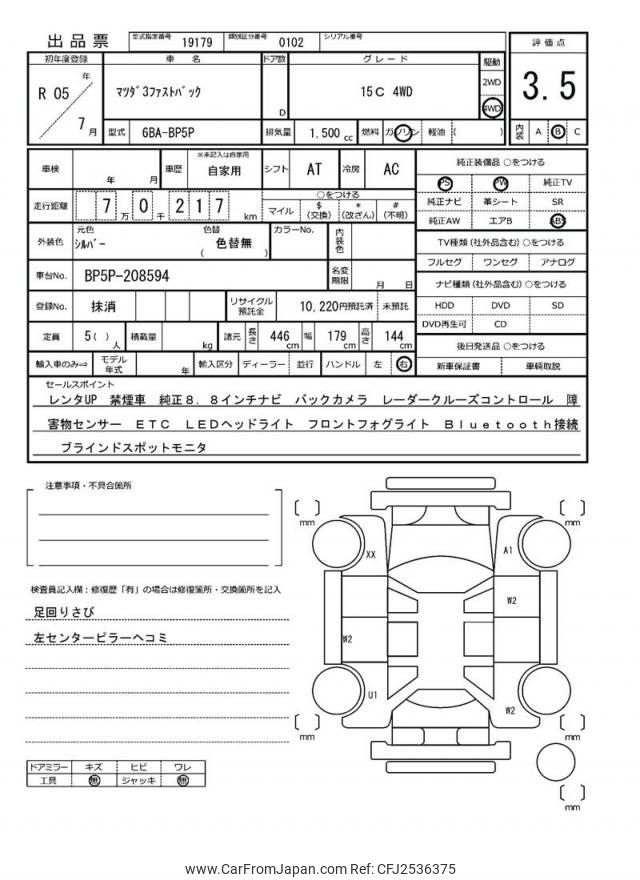 出品票
型式指定番号 19179 類別区分番号 0102 シリアル番号
評価点
3.5
内装 A B C
初年度登録 車名 ドア数 グレード 駆動
R 05 年 7 月
ﾏﾂﾀﾞ3ﾌｧｽﾄﾊﾞｯｸ D 15C 4WD 2WD 4WD
型式 6BA-BP5P 排気量 1,500 cc 燃料 ガソリン 軽油 ( )
車検 年 月 車歴 ※未記入は自家用 自家用 シフト AT 冷房 AC
走行距離 7 万 0 千 2 1 7 km
○をつける
マイル $ (交換) * (改ざん) # (不明)
外装色 元色 ｼﾙﾊﾞｰ 色替 ( 色替無 ) カラーNo. 内装色
車台No. BP5P-208594 名変期限 月 日
登録No. 抹消 リサイクル預託金 10,220円預託済 未預託
定員 5( ) 人 積載量 kg 諸元 長さ 446 cm 幅 179 cm 高さ 144 cm
輸入車のみ⇒ モデル年式 年 輸入区分 ディーラー 並行 ハンドル 左 右
純正装備品 ○をつける
PS PW 純正TV
純正ナビ 革シート SR
純正AW エアB ABS
TV種類 (社外品含む) ○をつける
フルセグ ワンセグ アナログ
ナビ種類 (社外品含む) ○をつける
HDD DVD SD
DVD再生可 CD
後日発送品 ○をつける
新車保証書 車輌取説
セールスポイント
レンタUP 禁煙車 純正8.8インチナビ バックカメラ レーダークルーズコントロール 障
害物センサー ETC LEDヘッドライト フロントフォグライト Bluetooth接続
ブラインドスポットモニタ
注意事項・不具合箇所
検査員記入欄：修復歴「有」の場合は修復箇所・交換箇所を記入
足回りさび
左センターピラーヘコミ
ドアミラー キズ ヒビ ワレ
工具 無 ジャッキ 無
[ ] mm
[ ] mm
XX
A1
W2
W2
U1
W2
[ ] mm
[ ] mm
[ ] mm
www.CarFromJapan.com Ref: CFJ2536375